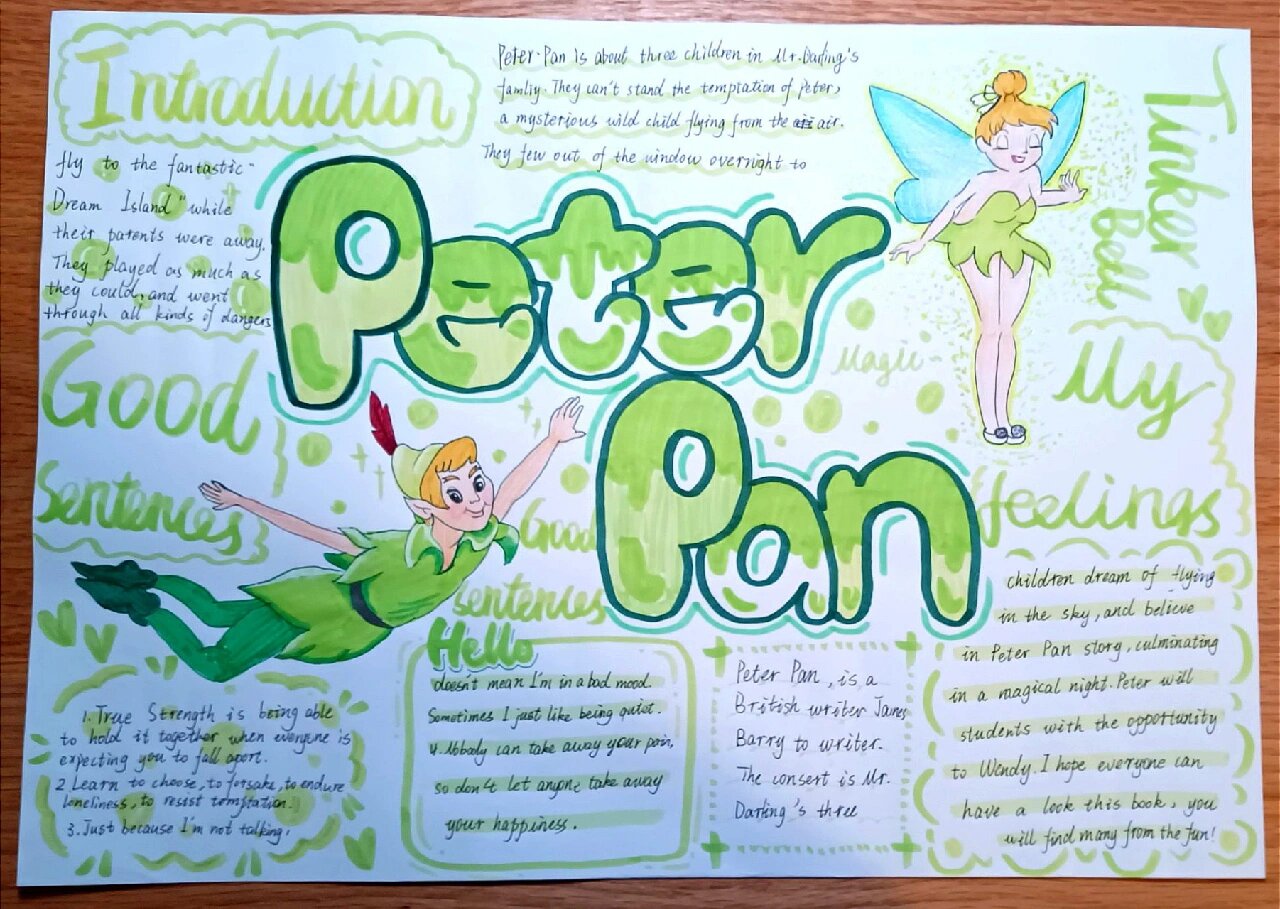 Introduction
Peter Pan is about three children in Mr. Darling's
famliy. They can't stand the temptation of Peter,
a mysterious wild child flying from the air.
They few out of the window overnight to
fly to the fantastic "
Dream Island" while
their parents were away.
They played as much as
they could, and went
through all kinds of dangers
Peter
Pan
Tinker
Bell
Magic
Good
Sentences
Good
sentences
1. True Strength is being able
to hold it together when everyone is
expecting you to fall apart.
2 Learn to choose, to forsake, to endure
loneliness, to resist temptation.
3. Just because I'm not talking,
Hello
doesn't mean I'm in a bad mood.
Sometimes I just like being quiet.
4. Nobody can take away your pain,
so don't let anyone take away
your happiness.
Peter Pan, is a
British writer James
Barry to writer.
The consert is Mr.
Darling's three
My
feelings
children dream of flying
in the sky, and believe
in Peter Pan story, culminating
in a magical night. Peter will
students with the opportunity
to Wendy. I hope everyone can
have a look this book, you
will find many from the fun!